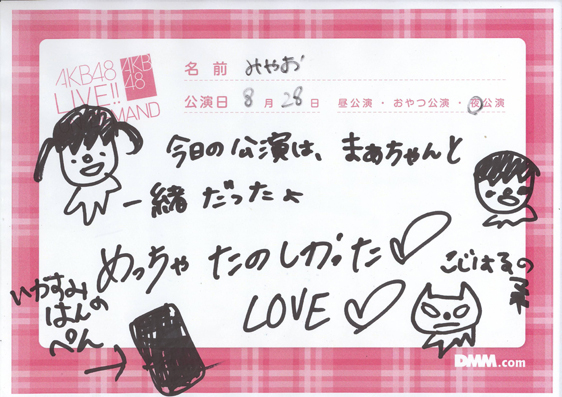 AKB48
LIVE!!
MAND
AKB
48
名前 みやお
公演日 8月28日 昼公演・おやつ公演・夜公演
今日の公演は、まぁちゃんと
一緒だったよ
めっちゃたのしかった♡
LOVE♡
こじはるの
いかすみ
はんの
ぺん
→
DMM.com